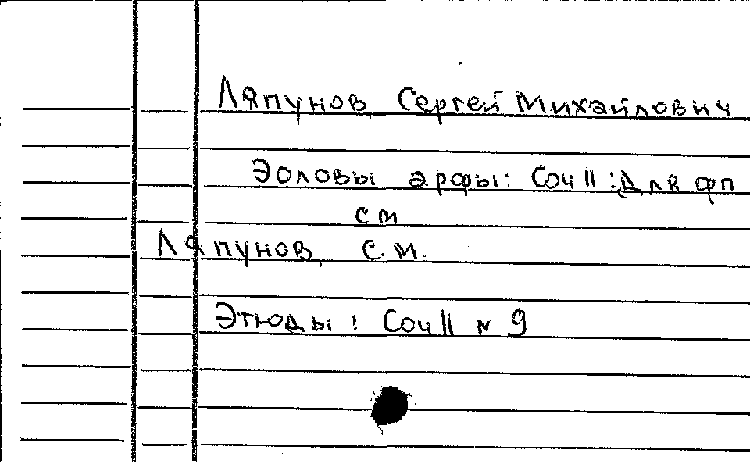 Ляпунов, Сергей Михайлович
Эоловы арфы: Соч 11 : Для фп
см
Ляпунов, С.М.
Этюды: Соч 11 № 9